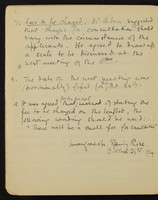 7. Fees to be charged. Dr Allen suggested
that charges for consultation should
vary with the circumstances of the
applicants. He agreed to draw up
a scale to be discussed at the
next meeting of the
8. The date of the next meeting was
(provisionally) fixed
It was agreed that, instead of stating the
fee to be charged on the leaflet, the
following wording should be used:
"There will be a small fee for consultation
Margaret Pyke